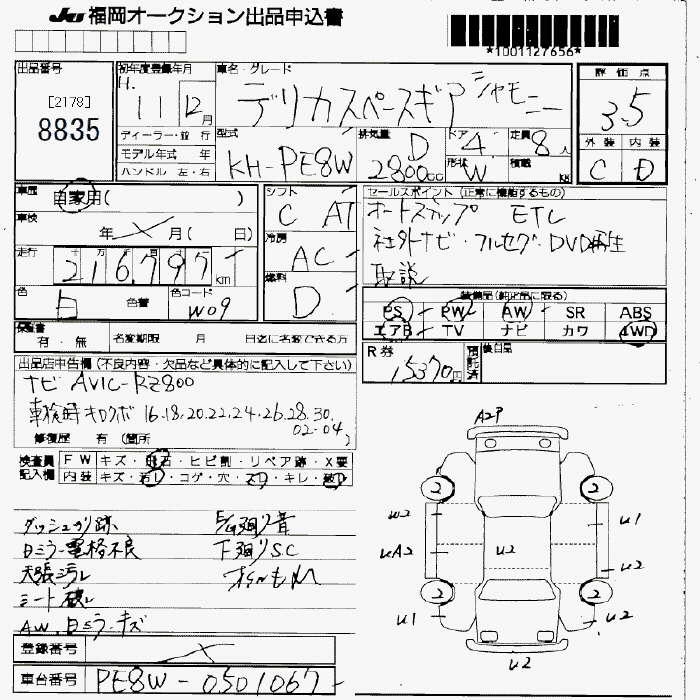 JU 福岡オークション出品申込書
*1001127656*
出品番号
[2178]
8835
初年度登録年月
H. 11 12月
ディーラー・並 行
モデル年式 年
ハンドル 左・右
車名・グレード
デリカスペースギア シャモニー
型式
KH-PE8W
排気量
D
2800cc
ドア 4
形状 W
定員 8人
積載 kg
評価点
3.5
外装 内装
C D
車歴
自家用( )
車検
年 月( 日)
走行
十 万 千 百 十 一
216,797 km
色
白
色替
色コード
W09
シフト
C AT
冷房
AC
燃料
D
セールスポイント(正常に機能するもの)
オートステップ ETC
社外ナビ・フルセグ・DVD再生
取説
装備品(純正品に限る)
PS PW AW SR ABS
エアB TV ナビ カワ 4WD
保証書
有・無
名変期限 月 日迄に名変できる方
R券
15370円
預託済
後日品
出品店申告欄(不良内容・欠品など具体的に記入して下さい)
ナビ AVIC-RZ800
車検時キロクボ 16.18.20.22.24.26.28.30.
02-04
修復歴 有(箇所 )
検査員
記入欄
FW キズ・飛石・ヒビ割・リペア跡・X要
内装 キズ・汚レ・コゲ・穴・スレ・キレ・破レ
ダッシュカリ跡
日ミラー電格不良
天張汚レ
シート破レ
AW.日ミラーキズ
下廻りSC
オイルもれ
A2P
2
2
W2
U1
UA2
U2
U2
2
2
U1
U2
U2
登録番号
車台番号
PE8W-0501067